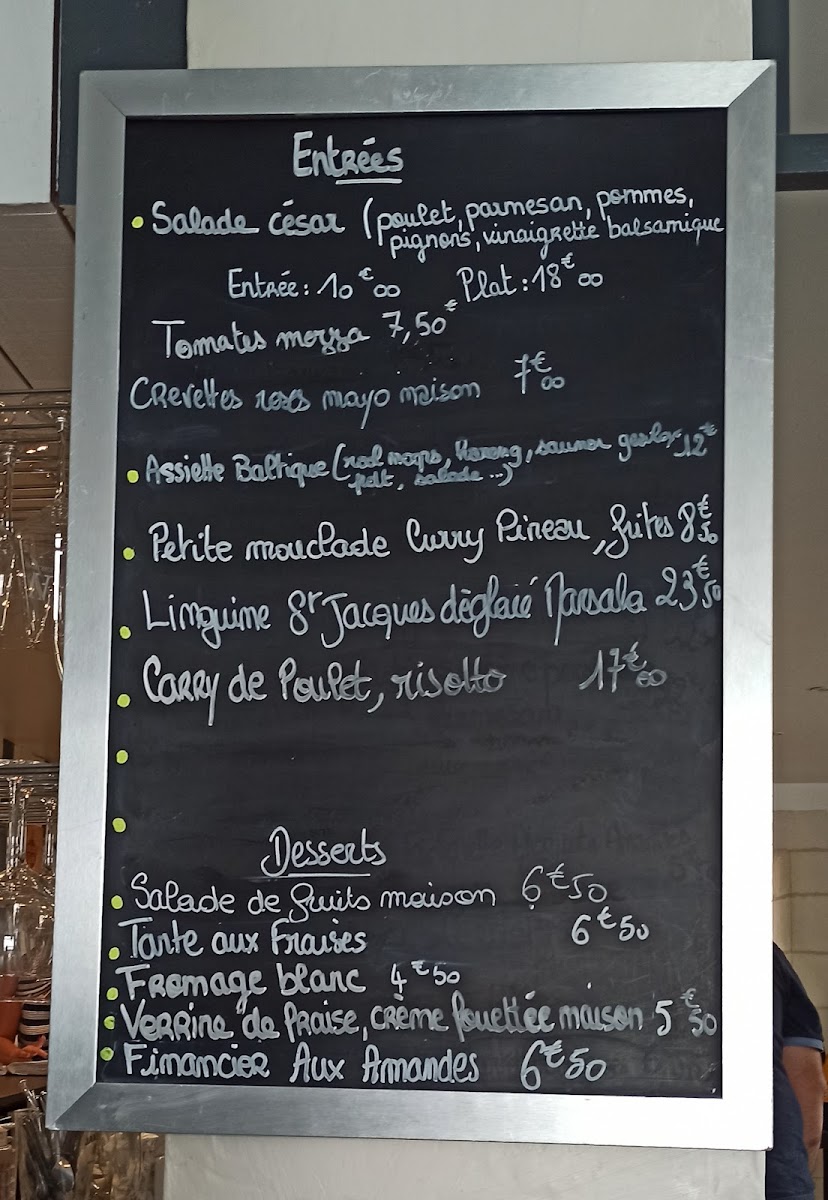 Entrées
Salade César (poulet, parmesan, pommes,
pignons, vinaigrette balsamique
Entrée : 10€00 Plat : 18€00
Tomates mozza 7,50€
Crevettes roses mayo maison 7€00
Assiette Baltique (rol mops, Hareng, saumon 12€
salade ...)
Petite mouclade Curry Pineau, frites 8€50
Linguine St Jacques déglacé Marsala 23€50
Carry de Poulet, risotto 17€00
Desserts
Salade de fruits maison 6€50
Tarte aux Fraises 6€50
Fromage blanc 4€50
Verrine de fraise, crème fouettée maison 5€50
Financier Aux Amandes 6€50